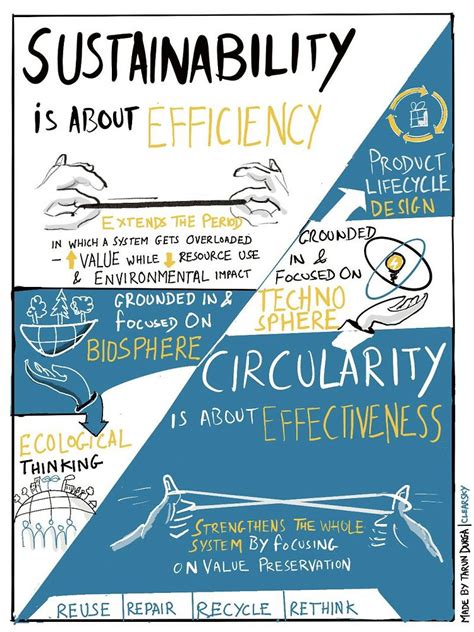 SUSTAINABILITY
is ABOUT EFFICIENCY
EXTENDS THE PERIOD
IN WHICH A SYSTEM GETS OVERLOADED
- ↑ VALUE WHILE ↓ RESOURCE USE
& ENVIRONMENTAL IMPACT
GROUNDED IN &
FOCUSED ON
BIOSPHERE
ECOLOGICAL
THINKING
PRODUCT
LIFECYCLE
DESIGN
GROUNDED
IN &
FOCUSED ON
TECHNO
SPHERE
CIRCULARITY
IS ABOUT EFFECTIVENESS
STRENGTHENS THE WHOLE
SYSTEM BY FOCUSING
ON VALUE PRESERVATION
REUSE | REPAIR | RECYCLE | RETHINK
MADE BY TARUN DURGA | CLEARSKY